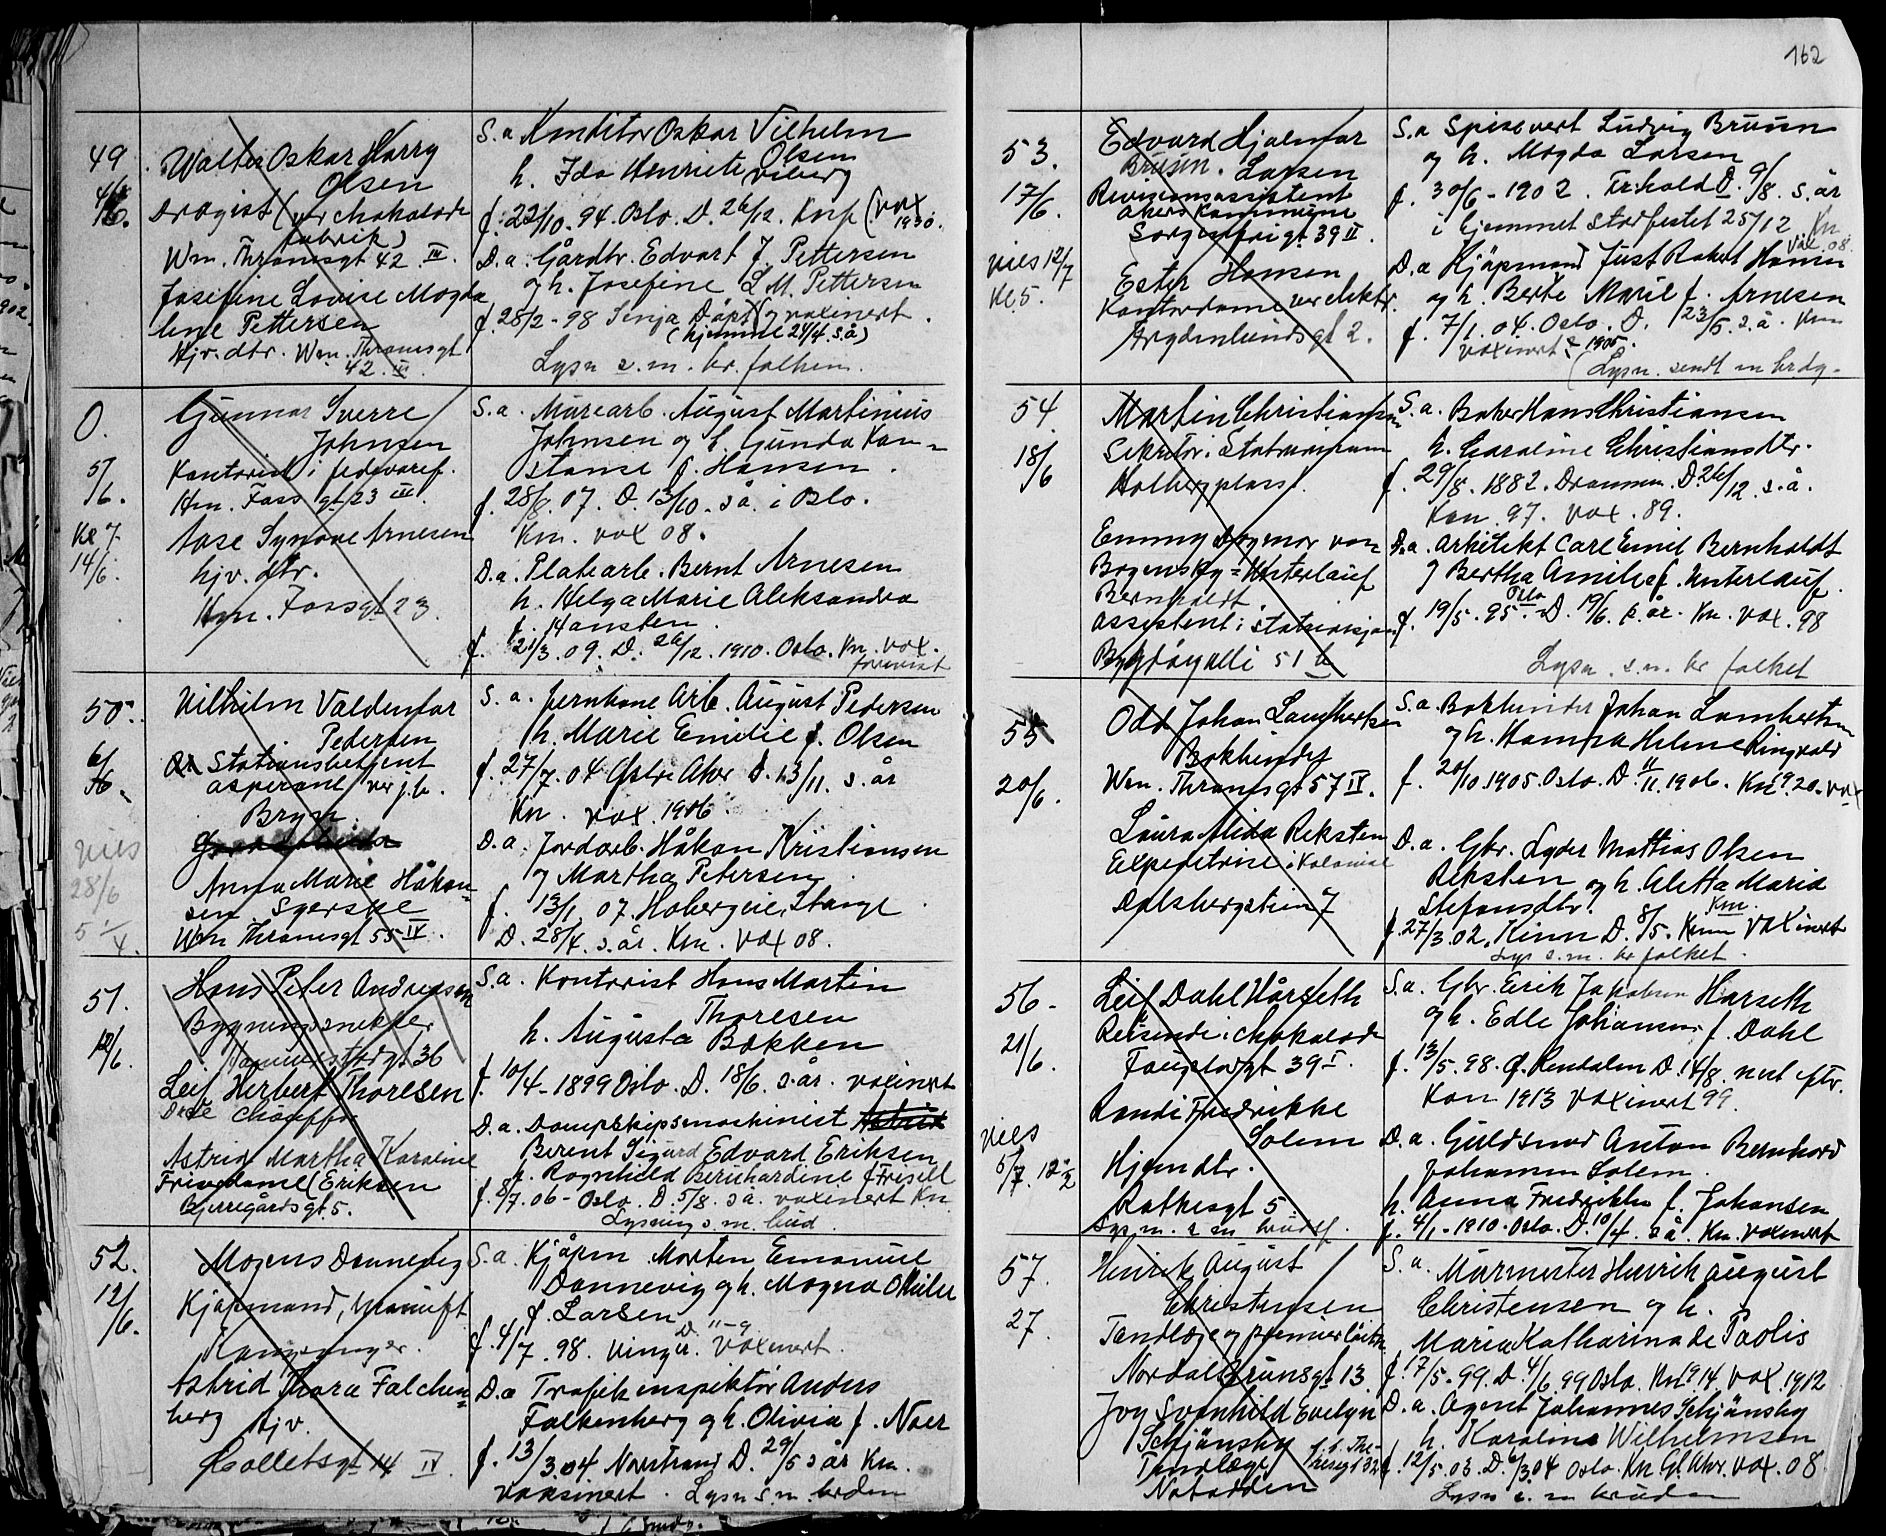 49
Walter Oskar Harry
Olsen
Drogist (ver chokolade
fabrik)
Wm. Thranesgt 42 III.
Josefine Lovise Magda
lene Pettersen
Hjv. dtr. Wm. Thranesgt
42. III
S. a Konditor Oskar Vilhelm
Olsen
h. Ida Henriete Viberg
f. 22/10. 94. Oslo. D. 26/12. Konf (vax
1930.
D. a. Gårdbr. Edvart J. Pettersen
og h. Josefine L M. Pettersen
f. 28/2 - 98 Senja Døpt og vaxinert.
(hjemme 24/4. s.å)
Lysn s. m. br. folkem.
0.
5/6.
Kl 7
14/6.
Gunnar Sverre
Johnsen
Kontorist i
Hm. Foss gt 23 III.
Aase Synøve Arnesen
hjv. dtr.
Hm. Fossgt 23
S. a. Murearb. August Martinius
Johnsen og h. Gunda Kon=
stanse f. Hansen.
f. 28/8. 07. D. 13/10. s å. i Oslo.
Kn. vax 08.
D. a. Platearb. Bernt Arnesen
h. Helga Marie Aleksandra
f. Hansten.
f. 21/3. 09. D. 26/12. 1910. Oslo. Kn. vax.
forevist
50.
6/6.
vies
28/6
5 1/4
Vilhelm Valdemar
Pedersen
Stationsbetjent
aspirant ver j.b.
Bryn.
Anna Marie Håkon=
sen. Syerske
Wm Thranesgt 55 IV.
S. a. Jernbane Arb. August Pedersen
h. Marie Emilie f. Olsen
f. 27/7. 04 Østre Aker D. 13/11. s. år
Kn. vax. 1906.
D. a. Jordarb. Håkon Kristiansen
og Martha Petersen
f. 13/1 07. Stange.
D. 28/4. s. år. Kn. vax 08.
51.
12/6.
Hans Peter Andreasen
Bygningssnekker
36
Leif Herbert Thoresen
Chauffør
Astrid Martha Karoline
Privatdame (Eriksen
Bjerregårdsgt. 5.
S. a. Kontorist Hans Martin
Thoresen
h. Augusta Bakken
f. 10/4 - 1899 Oslo. D. 18/6. s. år. vaxinert
D. a. Dampskipsmaskinist
Berent Sigurd Edvard Eriksen
h. Ragnhild Bernhardine f Frisell
f. 8/7. 06 - Oslo. D. 5/8. s å. vaxinert Kn
Lysning s. m. brud.
52.
12/6.
Mogens Dannevig
Kjøpmand,
Kongsvinger.
Astrid Thora Falchen=
berg Hjv.
Colletsgt 14 IV.
S. a. Kjøpm Morten Emanuel
Dannevig og h. Magna Otilie
f. Larsen
f. 4/7. 98. Vinger. Vaxinert.
D. a Trafikinspektør Anders
Falkenberg og h. Olivia f. Noer
f. 13/3.04 Nordstrand D. 29/5 s år Kn.
vaksinert. Lysn s. m. bruden
162
53.
17/6.
vies 12/7
Kl 5.
Edvard Hjalmar
Bruun. Larsen
Revisionsassistent
Akers kommune
Sorgenfrigt 39 II.
Ester Hansen
Kontordame ver elektr.
Frydenlundsgt 2.
S. a Spisevert Ludvig Bruun
og h. Magda Larsen
f. 30/6 - 1902. Tr.hald D. 9/8. s. år
i hjemmet stadfestet 25/12. Kn
vax. 08.
D. a Kjøpmand Just Robert Hansen
og h. Berte Marie f. Arnesen
f. 7/1. 04. Oslo. D. 23/5. s. å. Kn
vaxinert 1905.
(Lysn. sendt m brdg.
54.
18/6
Martin Christiansen
Sekretær i Statsrevisionen
Holbergplass 1.
Emmy Dagmar von
Bogensky = Unterlauf
Bernholdt.
Assistent i statsrevisjon
Bygdøyalle 51 b
S. a. Baker Hans Christiansen
h. Caroline Christiansdtr.
f. 29/8. 1882. Drammen. D. 26/12. s. å.
Kon. 97. vax. 89.
D. a. Arkitekt Carl Emil Bernholdt
og Bertha Amilie f. Unterlauf.
f. 19/5. 95 Oslo D. 19/6. s. år. Kn. vax. 98
Lysn. s. m. br folket
55
20/6.
Odd Johan Lamhertsen
Bokbinder
Wm. Thranesgt 57 IV.
Laura Alida Reksten
Expeditrise i Kolonial
Dalsbergstien 7
S. a. Bokbinder Johan Lambertsen
og h. Hanna Helene Ringvold
f. 20/10 1905. Oslo. D. 11/11. 1906. Kn 19 20. vax
D. a. Gbr. Lyder Mattias Olsen
Reksten og h. Aletta Maria
Stefansdtr.
Kn.
f. 27/3. 02. Kinn D. 8/5. Kinn Vaxinert
Lys s. m. br folket.
56 -
21/6.
vies
5/7. 12 1/2
Leif Dahl Hårseth
Reisende i chokolade
39 I.
Randi Fredrikke
Solem
Hjemdtr.
Rathesgt 5.
Lysn. s m brudef.
S. a. Gbr. Erik Jakobsen Harseth
og h. Edle Johansen f. Dahl
f. 13/5. 98. Ø. Rendalen D. 14/8. næst eftr.
Kon 1913 vaxinert 99.
D. a. Guldsmed Anton Bernhard
Johannes Solem.
h. Anna Fredrikke f. Johansen
f. 4/1 - 1910. Oslo. D. 10/4. s å. Kn. vaxinert
57.
27.
Henrik August
Christensen
Tandlæge og premierløitn
Nordal Brunsgt 13
Joy Svanhild Evelyn
Schjånsby
Tandlæge
Notodden
S. a. Murmester Henrik August
Christensen og h.
Maria Katharina de Paolis
f. 17/5. 99. D. 4/6. 99 Oslo. Kn 19 14. vax. 1912
D. a. Agent Johannes Schjånsby
h. Karoline Wilhelmsen
f. 12/5. 03. D. 6/3. 04 Oslo. Kn Gl. Aker. vax. 08.
Lysn s. m bruden